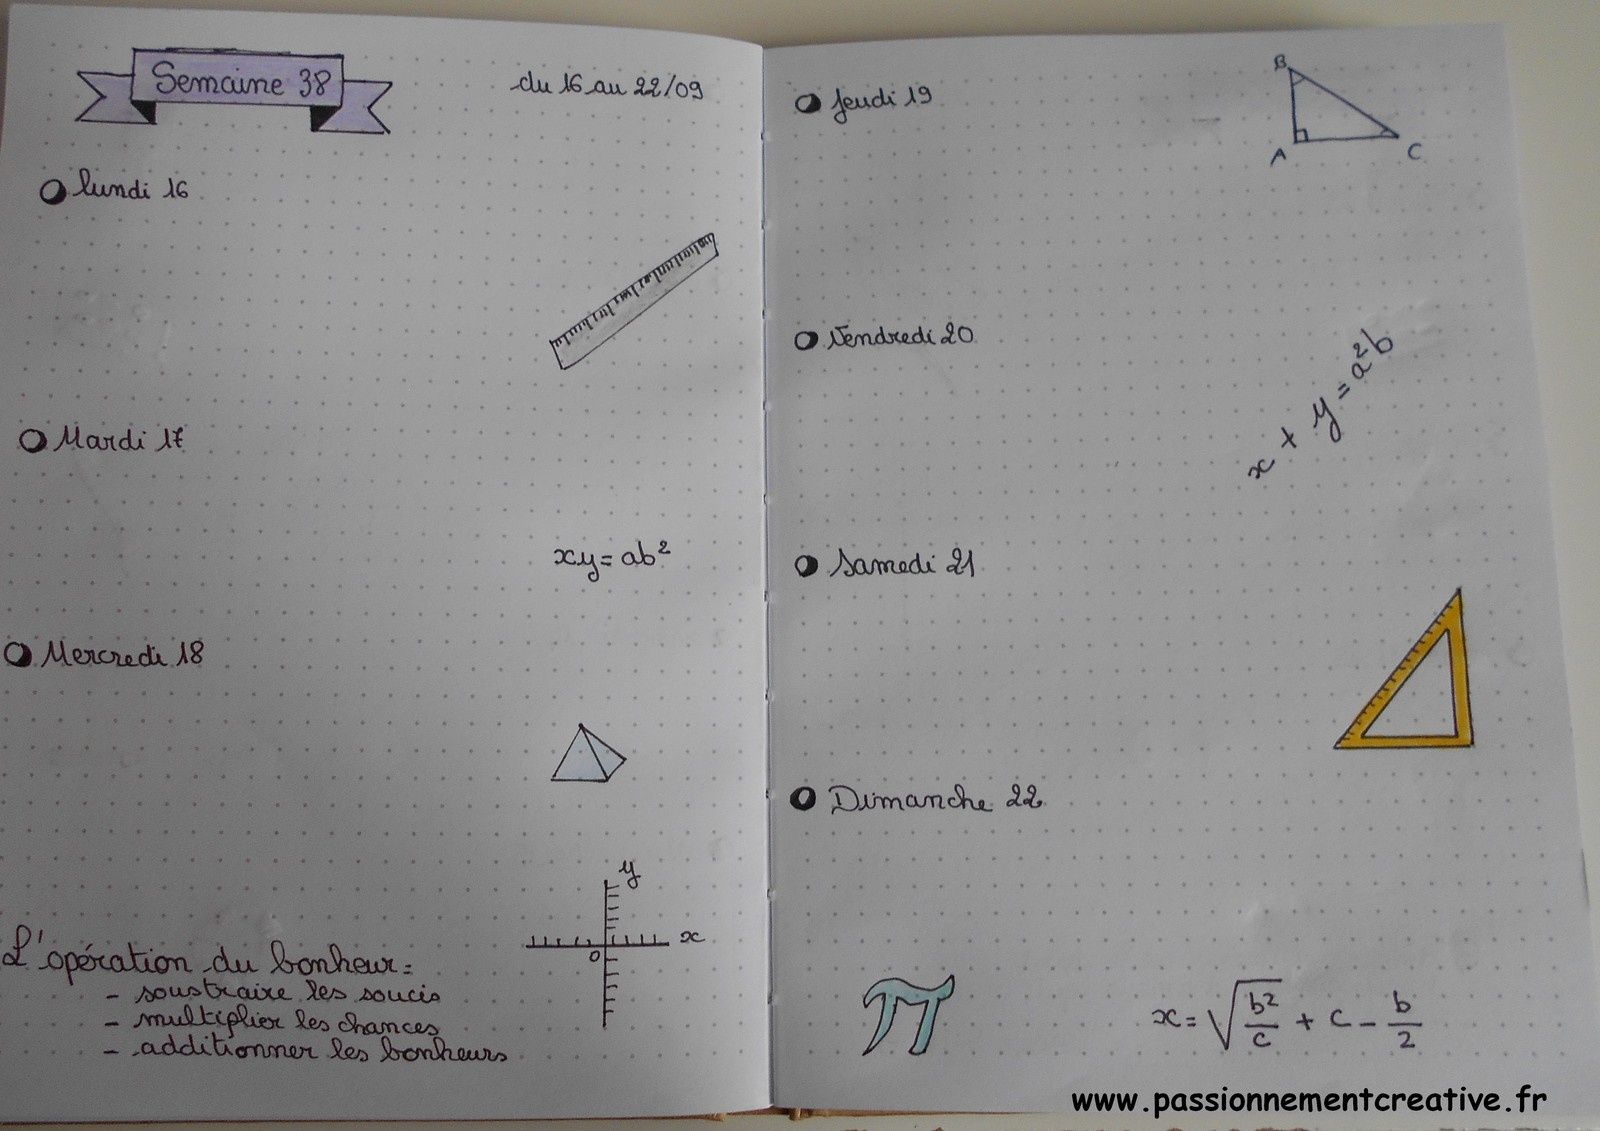 Semaine 38
du 16 au 22/09
lundi 16
Mardi 17
xy = ab²
Mercredi 18
y
x
0
L'opération du bonheur :
- soustraire les soucis
- multiplier les chances
- additionner les bonheurs
Jeudi 19
B
A
C
Vendredi 20
x + y = a²b
Samedi 21
Dimanche 22
π
x = √(b²/c) + c - b/2
www.passionnementcreative.fr